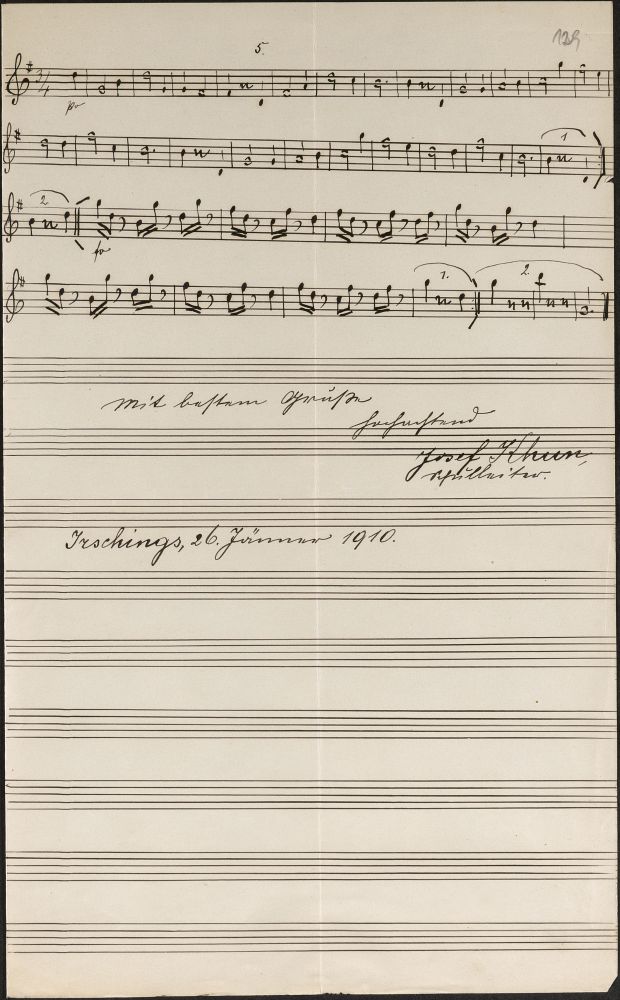 5.
129
3/4
po
1
2
fo
1.
2.
Mit bestem Gruße
hochachtend
Josef Khun,
Schulleiter.
Irschings, 26. Jänner 1910.